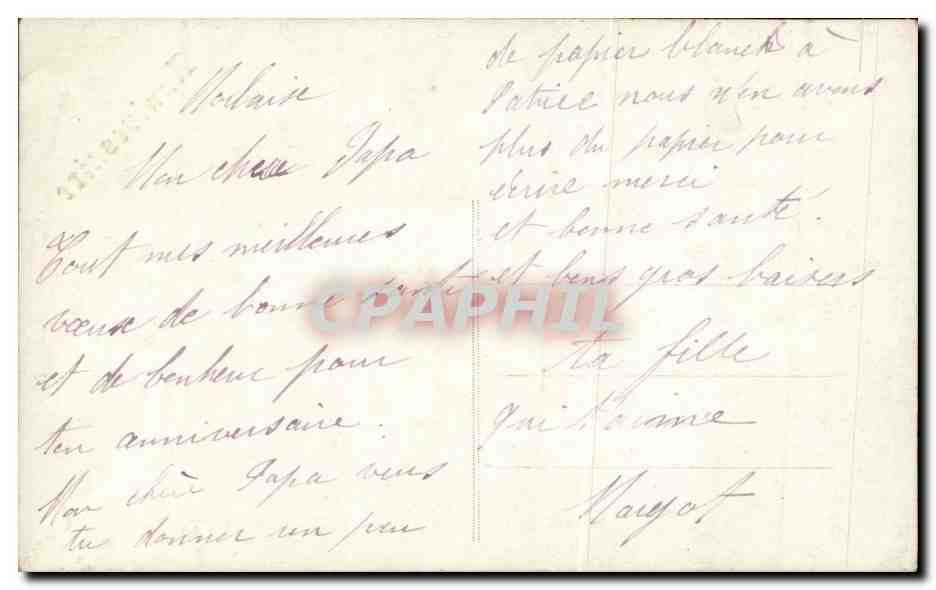 Morlaise
Mon chere Papa
Tout mes meilleures
vœux de bonne santé
et de bonheur pour
ton anniversaire.
Mon chèr Papa veus
tu donner un peu
de papier blanch à
nous n'en avons
plus du papier pour
écrire merci
et bonne santé.
et bons gros baisers
ta fille
qui t'aime
Margot
CPAPHIL